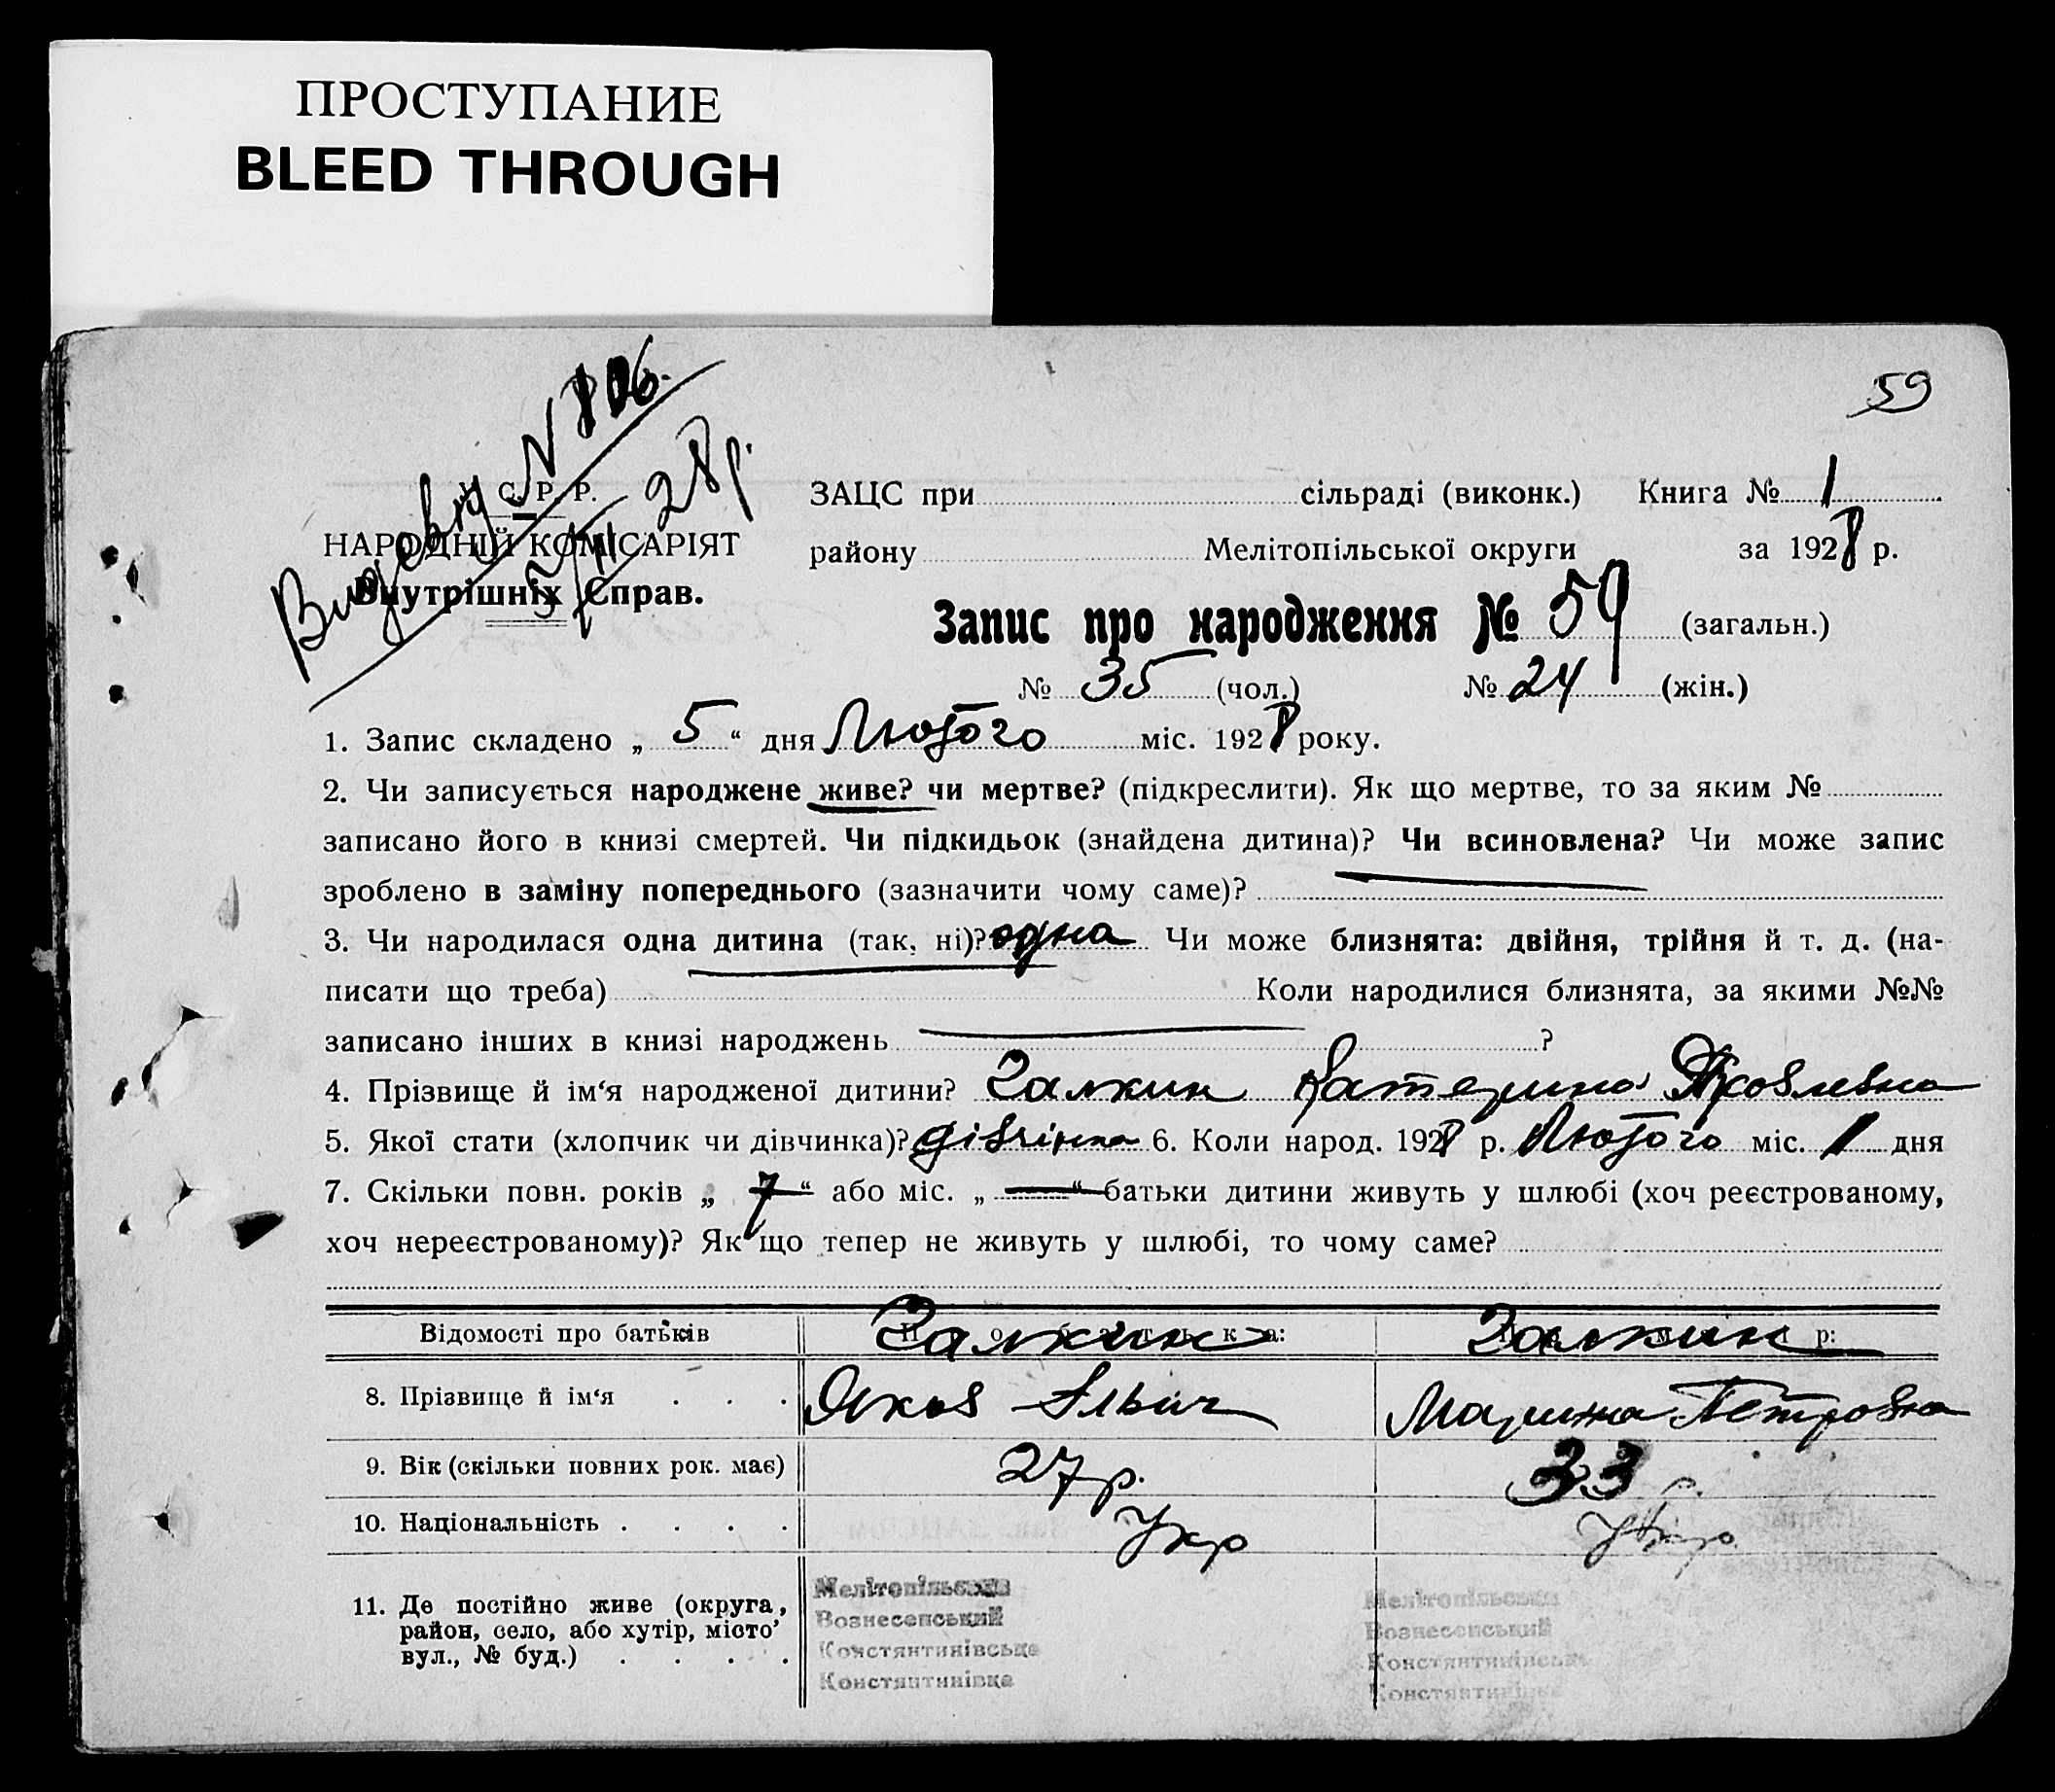 ПРОСТУПАНИЕ
BLEED THROUGH
59
Видову N 806.
28 р.
У. С. Р. Р.
НАРОДНІЙ КОМІСАРІЯТ
Внутрішніх Справ.
ЗАЦС при сільраді (виконк.) Книга № 1
району Мелітопільської округи за 1928 р.
Запис про народження № 59 (загальн.)
№ 35 (чол.) № 24 (жін.)
1. Запис складено „ 5 “ дня Лютого міс. 1928 року.
2. Чи записується народжене живе? чи мертве? (підкреслити). Як що мертве, то за яким №
записано його в книзі смертей. Чи підкидьок (знайдена дитина)? Чи всиновлена? Чи може запис
зроблено в заміну попереднього (зазначити чому саме)?
3. Чи народилася одна дитина (так, ні)? одна Чи може близнята: двійня, трійня й т. д. (на-
писати що треба) Коли народилися близнята, за якими №№
записано інших в книзі народжень ?
4. Прізвище й ім‘я народженої дитини? Галкин Катерина Яковлевна
5. Якої стати (хлопчик чи дівчинка)? дівчінка 6. Коли народ. 1928 р. Лютого міс. 1 дня
7. Скільки повн. років „ 7 “ або міс. „ — “ батьки дитини живуть у шлюбі (хоч реєстрованому,
хоч нереєстрованому)? Як що тепер не живуть у шлюбі, то чому саме?
Відомості про батьків Галкин Галкин
8. Прізвище й ім‘я . . . Яков Ільич Марина Петровна
9. Вік (скільки повних рок. має) 27 р. 33
10. Національність . . . . Укр Укр
11. Де постійно живе (округа,
район, село, або хутір, місто’
вул., № буд.) . . . .
Мелітопільська
Вознесенський
Констянтинівська
Констянтинівка
Мелітопільська
Вознесенський
Констянтинівська
Констянтинівка